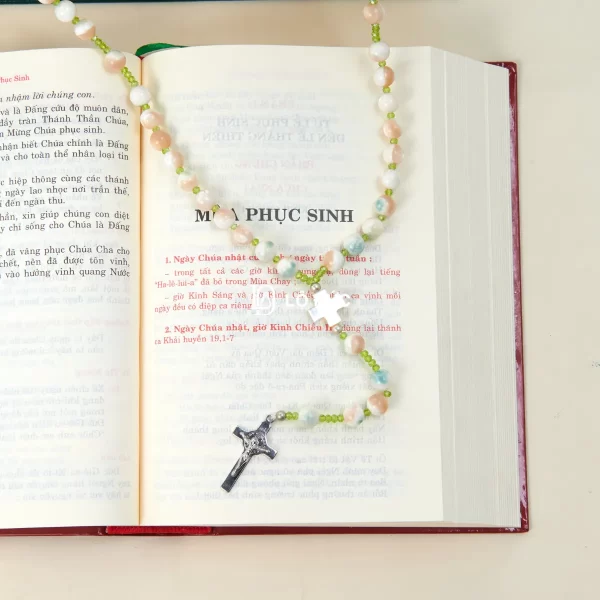 Phục Sinh
nhậm lời chúng con.
và là Đấng cứu độ muôn dân,
đầy tràn Thánh Thần Chúa,
Mừng Chúa phục sinh.
nhận biết Chúa chính là Đấng
và cho toàn thể nhân loại tin
hiệp thông cùng các thánh
ngày lao nhọc nơi trần thế,
đến ngàn thu.
xin giúp chúng con diệt
chỉ sống cho Chúa là Đấng
đã vâng phục Chúa Cha cho
chết, nên đã được tôn vinh,
vào hưởng vinh quang Nước
MÙA PHỤC SINH
1. Ngày Chúa nhật ngày tuần :
– trong tất cả các giờ kinh dùng lại tiếng
"Ha-lê-lui-a" đã bỏ trong Mùa Chay
– giờ Kinh Sáng và giờ Kinh Chiều ca vịnh mỗi
ngày đều có điệp ca riêng
2. Ngày Chúa nhật, giờ Kinh Chiều II, dùng lại thánh
ca Khải huyền 19,1-7